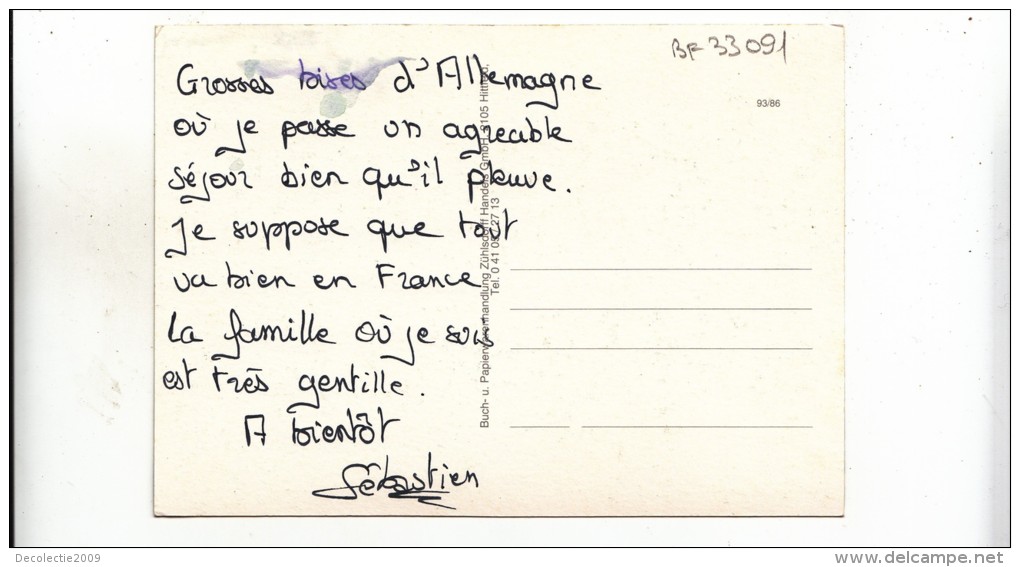 BF 33091
Grosses bises d'Allemagne
où je passe un agreable
séjour bien qu'il pleuve.
Je suppose que tout
va bien en France
La famille où je suis
est très gentille.
A bientôt
Sébastien
93/86
Buch- u. Papierwarenhandlung Zühlsdorff Handels GmbH, 2105 Hittfeld,
Tel. 0 41 05 / 27 13
Decolectie2009
www.delcampe.net